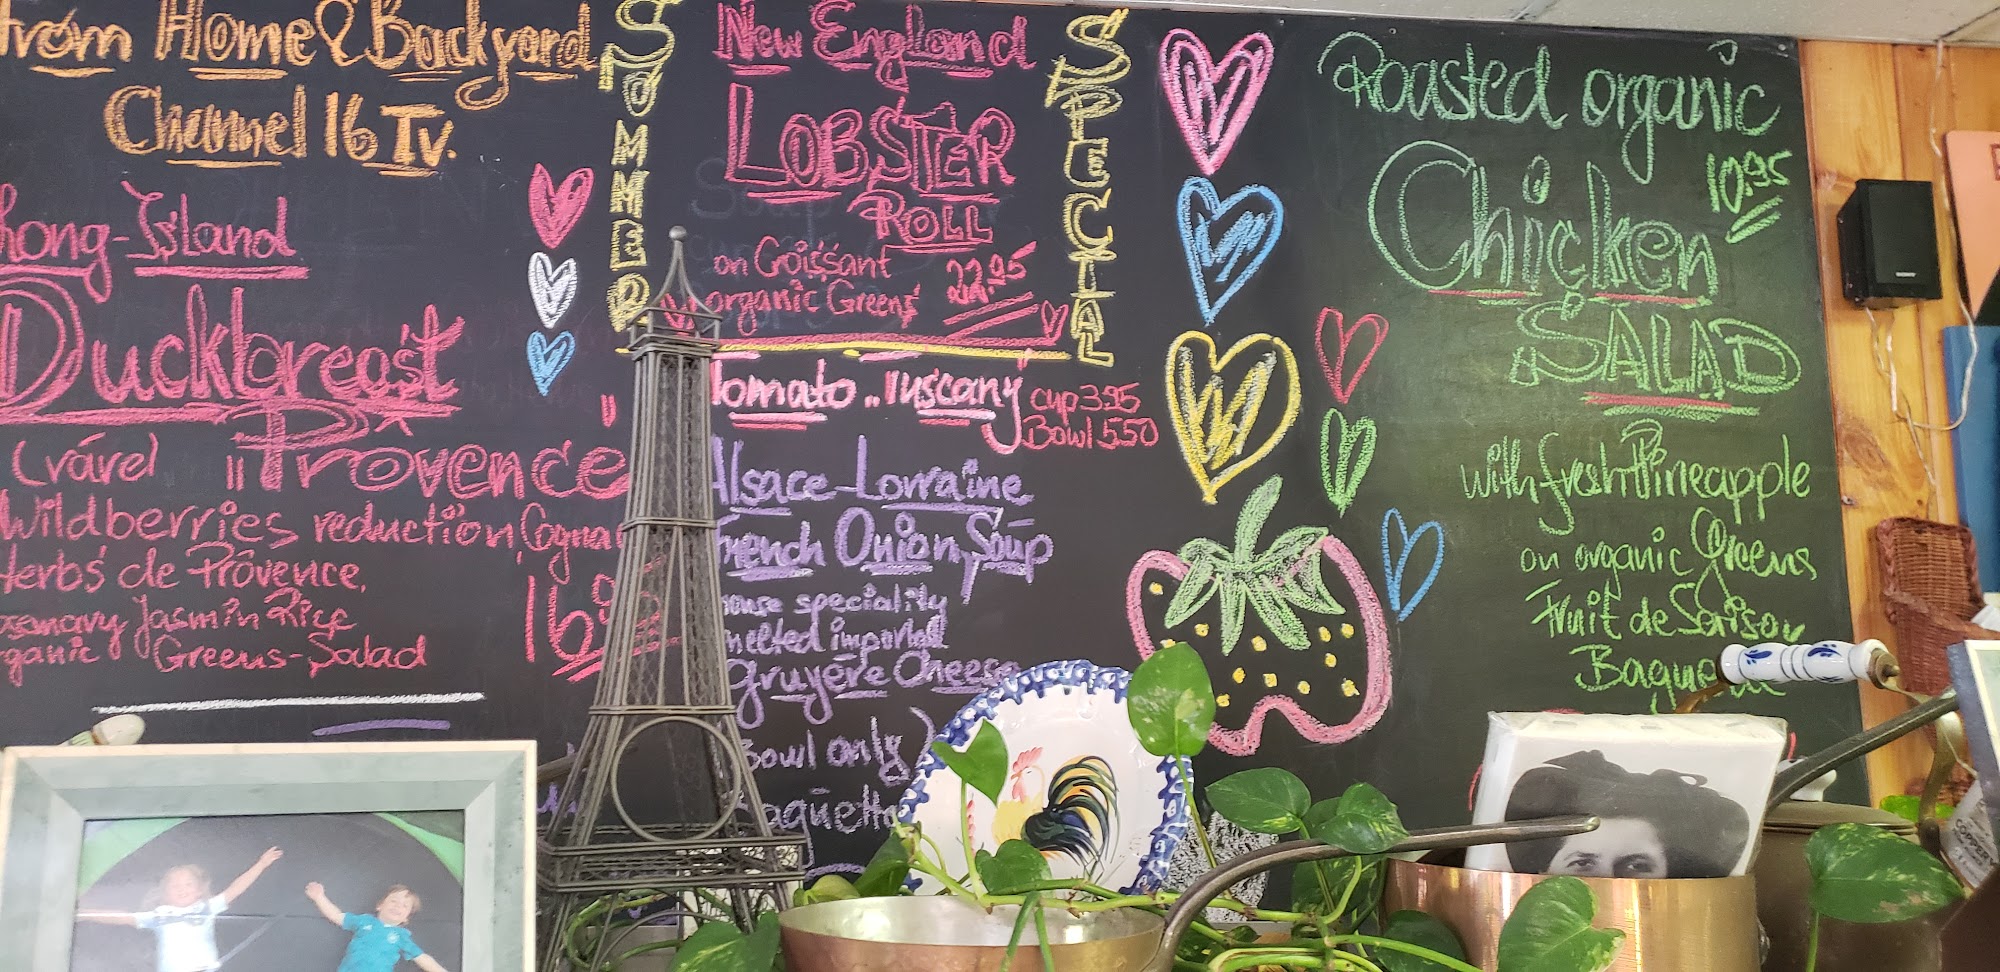 from Home & Backyard
Channel 16 Tv.
Long-Island
Duckbreast
"Provence"
Wildberries reduction,
Herbs de Provence,
Jasmin Rice
Greens-Salad
16
SUMMER
SPECIAL
New England
LOBSTER
ROLL
on Croissant
organic Greens
22.95
Tomato.. Tuscany
cup 3.95
Bowl 5.50
Alsace-Lorraine
French Onion Soup
house speciality
melted
Gruyere Cheese
Bowl only)
Roasted organic
Chicken
10.95
SALAD
with fresh Pineapple
on organic Greens
Fruit de Saison
SONY